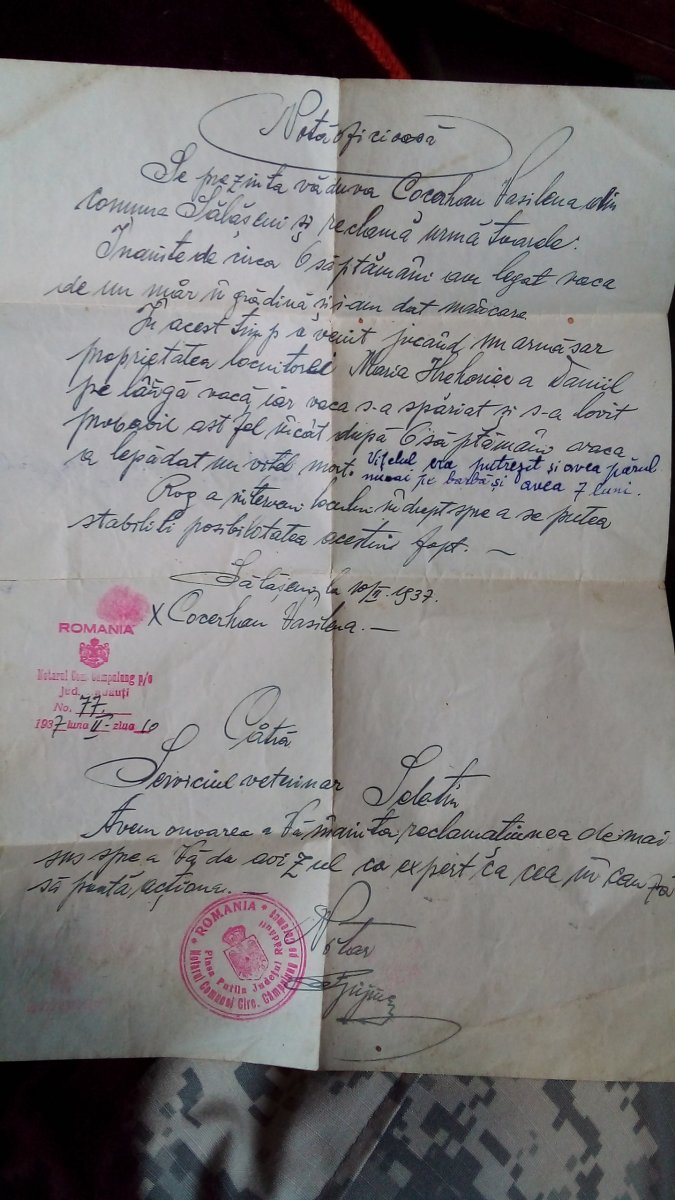 Notă oficioasă
Se prezintă văduva Cocerhan Vasilena din
comuna Sălășeni și reclamă următoarele:
Înainte de circa 6 săptămâni am legat vaca
de un măr în grădină și i-am dat mâncare
În acest timp a venit jucând un armăsar
proprietatea locuitorei Maria Hrehoriac a Daniil
pe lângă vacă, iar vaca s-a spăriat și s-a lovit
probabil astfel încât după 6 săptămâni vaca
a lepădat un vițel mort. Vițelul era putrezit și avea părul
numai pe barbă și avea 7 luni.
Rog a interveni locului în drept spre a se putea
stabili posibilitatea acestui fapt. —
Sălășeni, la 10/II. 1937.
X Cocerhan Vasilena. —
ROMANIA
Notarul Com. Câmpulung p/c
Jud. Rădăuți
No. 77.
1937 luna II - ziua 10
Către
Serviciul veterinar Seletin
Avem onoarea a Vă înainta reclamațiunea de mai
sus spre a Vă da avizul ca expert ca cea în cauză
să poată acționa. —
ROMANIA
Notarul Comunei Circ. Câmpulung pe Ceremuș
Plasa Putila Județul Rădăuți
Notar